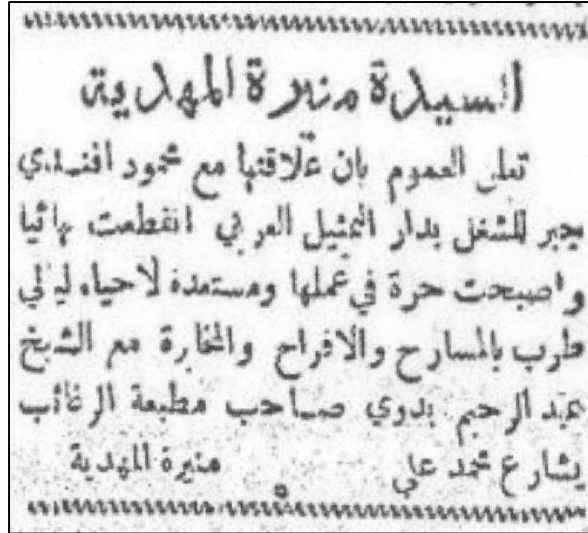 السيدة منيرة المهدية
تعلن العموم بان علاقتها مع محمود افندي
جبر للشغل بدار التمثيل العربي انقطعت نهائيا
واصبحت حرة في عملها ومستعدة لاحياء ليالي
طرب بالمسارح والافراح والمخابرة مع الشيخ
عبد الرحيم بدوي صاحب مطبعة الرغائب
بشارع محمد علي منيرة المهدية